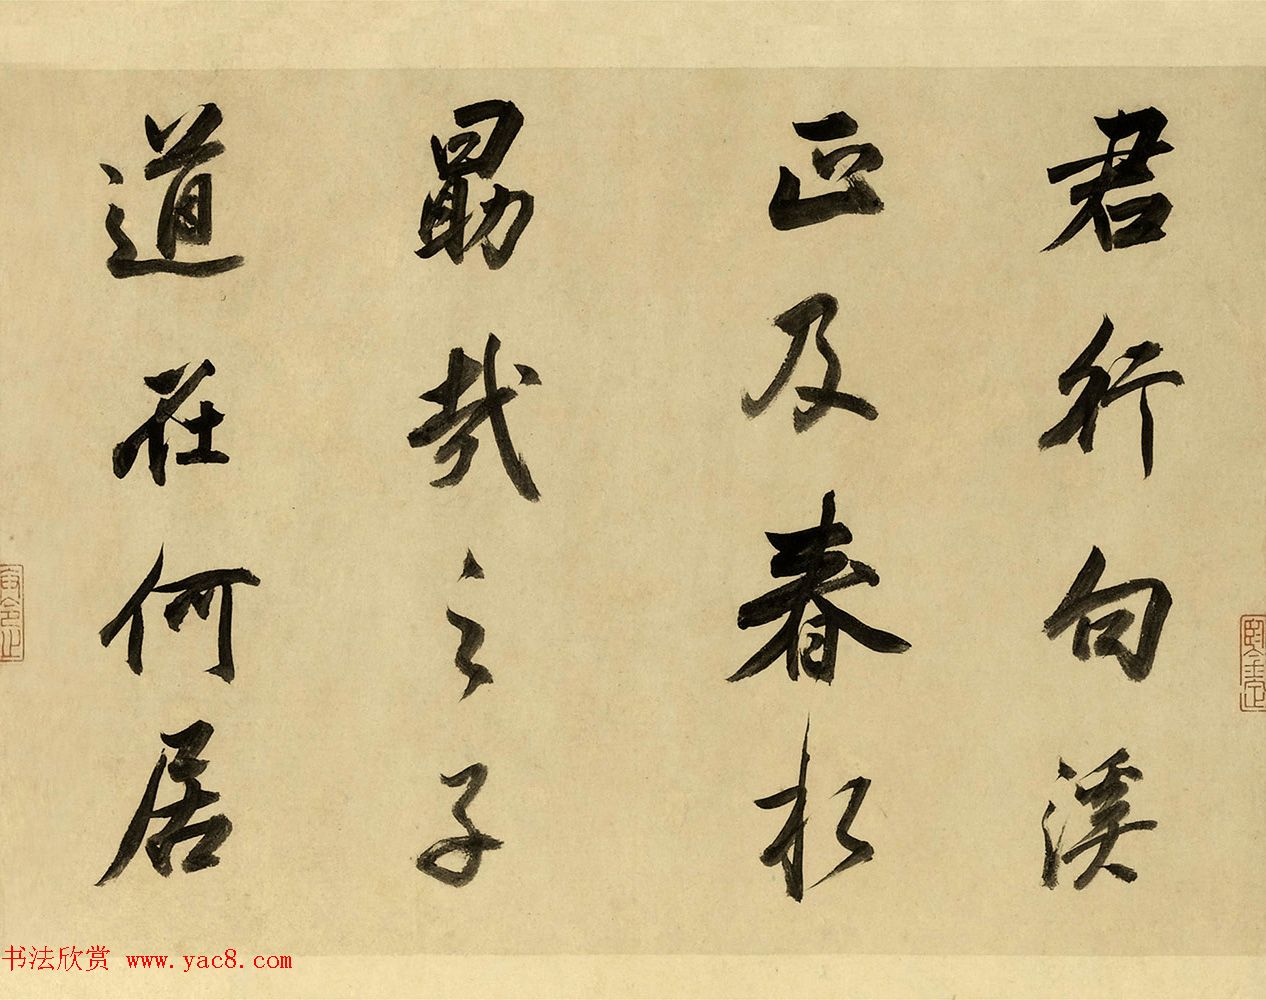 君行句溪
正及春
勗哉之子
道在何居
书法欣赏 www.yac8.com